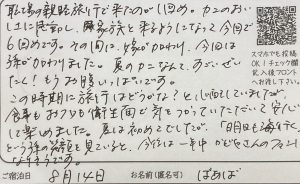 職場の親睦旅行で来たのが1回め。カニのおい
しさに感動し、家族と来るようになって今回で
6回めです。その間に、嫁が加わり、今回は
孫が加わりました。夏のカニなんて、すごいぜい
たく!もうお腹いっぱいです。
この時期に旅行はどうかな?と心配していましたが、
食事もおフロも衛生面で気をつかっていただいて安心
して楽めました。孫は初めてでしたが、「明日も海行く」
という孫の笑顔を見ていると、今年は一年中がむしゃらに
なりそうです。
スマホでも投稿
OK!チェック欄
記入後フロント
へお渡し下さい。
ご宿泊日 8月14日 お名前(匿名可) ばあば